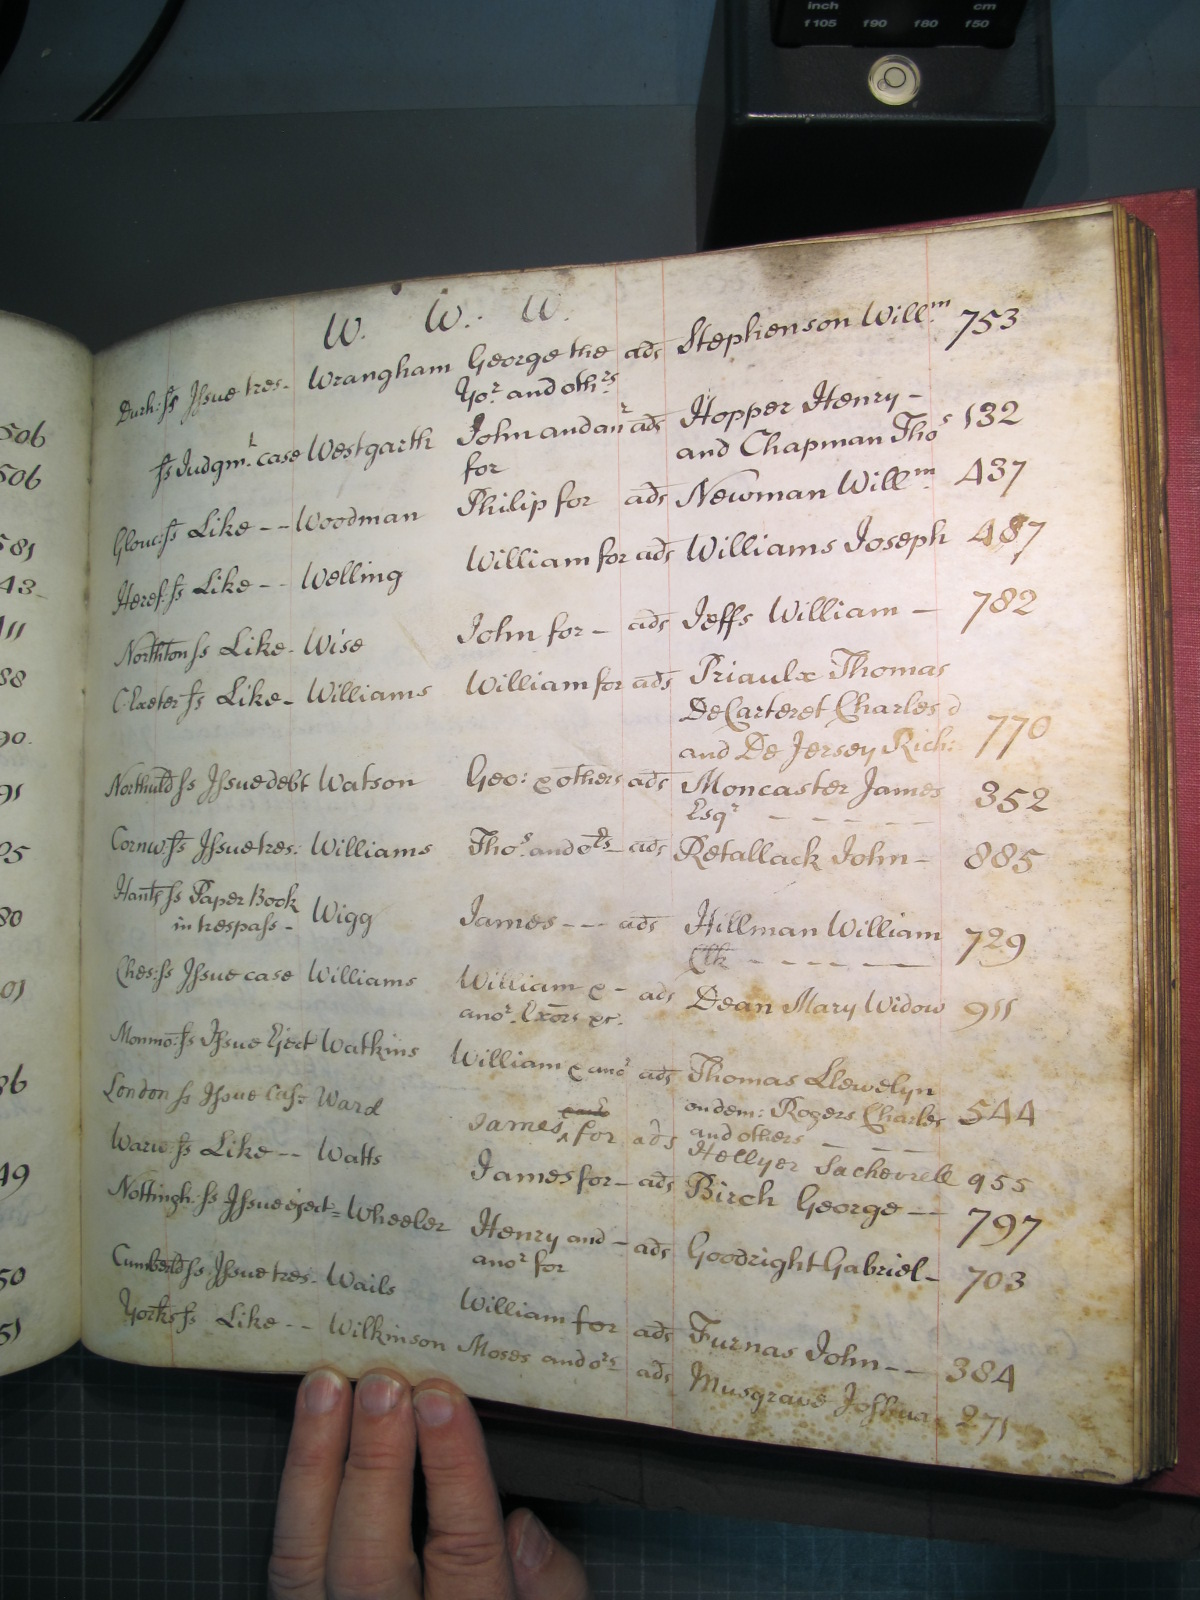 inch cm
f105 f90 f80 f50
W. W. W.
Durh: ss Issue tres- Wrangham George the ads Stephenson Will.m 753
Yo.r and oth.rs
ss Judgm.t case Westgarth John and an.r ads Hopper Henry - 132
for and Chapman Tho.s
Glouc: ss Like -- Woodman Philip for ads Newman Will.m 437
Heref: ss Like -- Welling William for ads Williams Joseph 487
Northton ss Like - Wise John for - ads Jeffs William - 782
Exeter ss Like - Williams William for ads Priaulx Thomas
DeCarteret Charles 770
and De Jersey Rich:d
Northuld ss Issue debt Watson Geo: & others ads Moncaster James 352
Esq.r - - - - -
Cornw: ss Issue tres: Williams Tho.s and o.rs - ads Retallack John - 885
Hants ss Paper Book
in trespass - Wigg James --- ads Hillman William 729
Clk - - - - -
Ches: ss Issue case Williams William & - ads Dean Mary Widow 911
ano.r Exors &c.
Monmo: ss Issue Eject Watkins William & ano.r ads Thomas Llewelyn
on dem: Rogers Charles 544
and others - - -
London ss Issue Cas: Ward James for ads Hellyer Sacheverell 955
Warw: ss Like -- Watts James for - ads Birch George -- 797
Nottingh: ss Issue eject = Wheeler Henry and - ads Goodright Gabriel - 703
ano.r for
Cumberld ss Issue tres - Wails William for ads Furnas John -- 384
Yorks ss Like -- Wilkinson Moses and o.rs ads Musgrave Joshua 271
506
506
581
43
411
88
90.
91
95
80
01
36
49
50
51